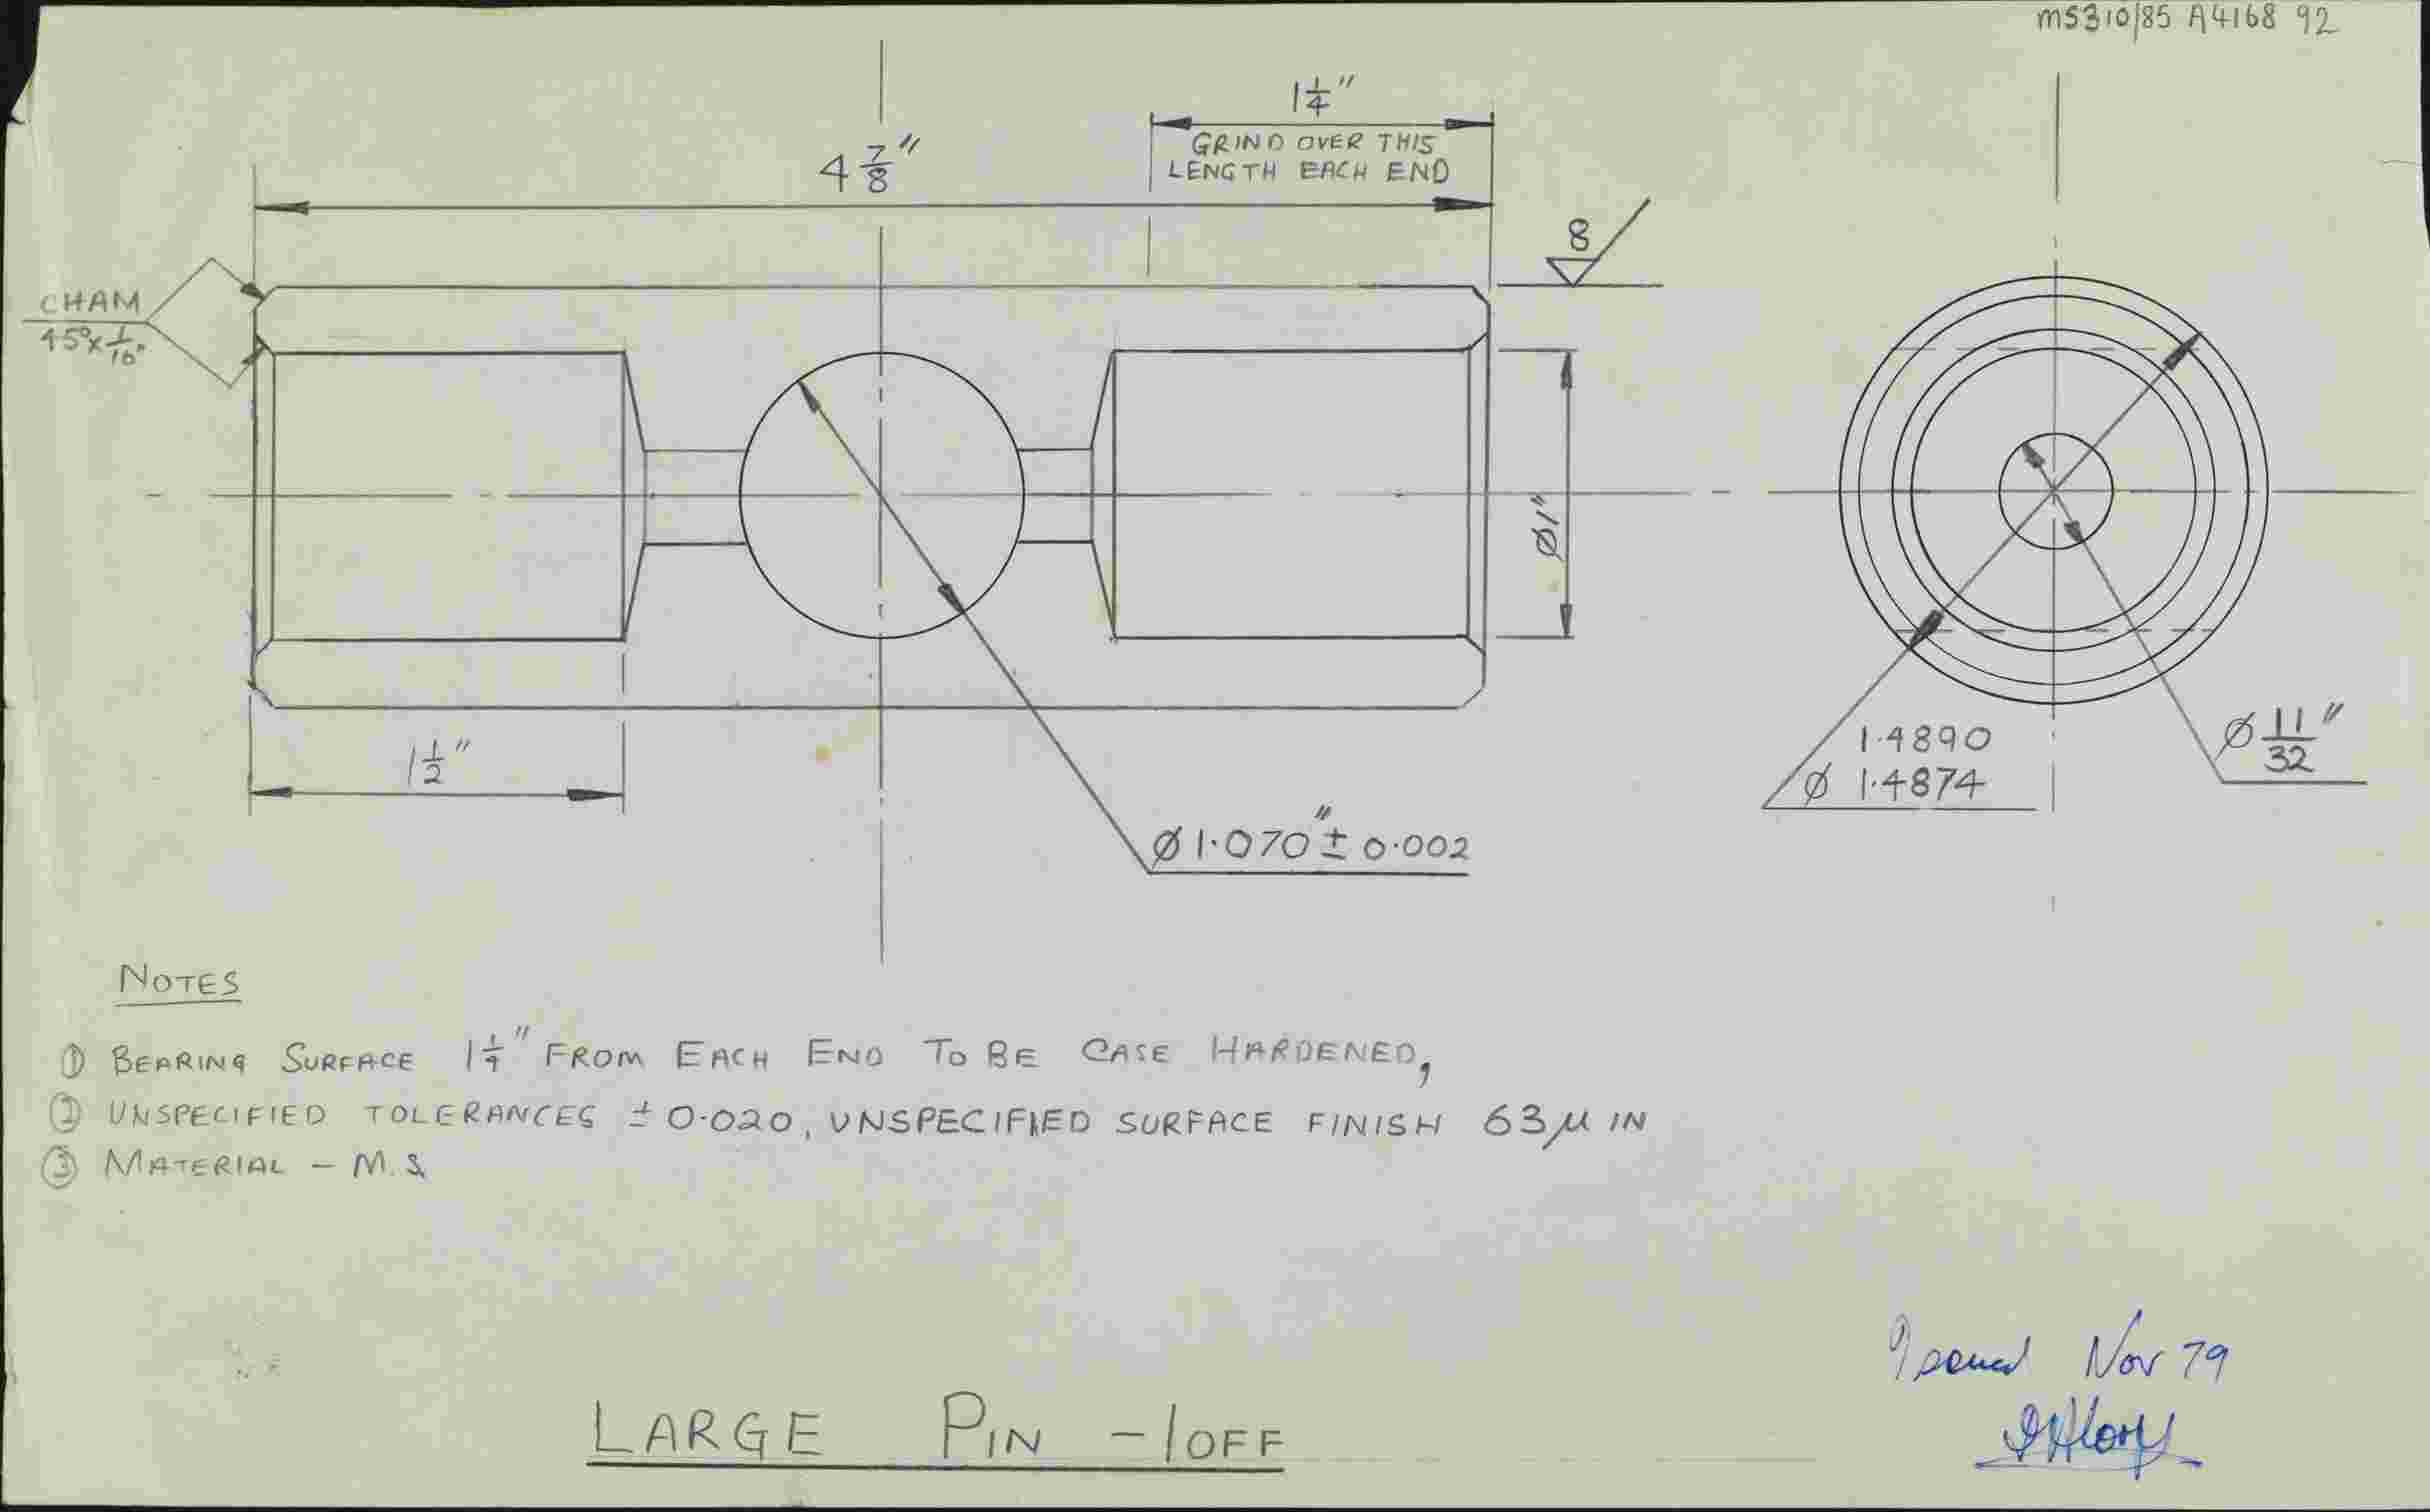 MS310/85 A4168 92
1 1/4"
GRIND OVER THIS
LENGTH EACH END
4 7/8"
8
CHAM
45° x 1/16"
Ø1"
1 1/2"
Ø 1.070" ± 0.002
1.4890
Ø 1.4874
Ø 11/32"
NOTES
① BEARING SURFACE 1 1/4" FROM EACH END TO BE CASE HARDENED,
② UNSPECIFIED TOLERANCES ± 0.020, UNSPECIFIED SURFACE FINISH 63 µ IN
③ MATERIAL - M.S.
Issued Nov 79
LARGE PIN - 1 OFF